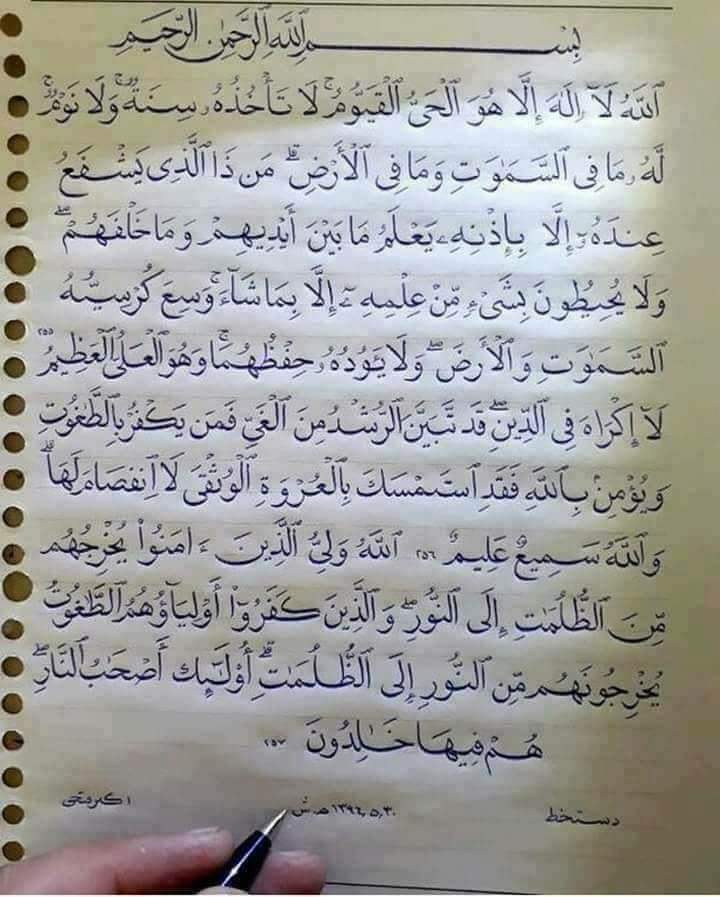 بِسْمِ اللَّهِ الرَّحْمَٰنِ الرَّحِيمِ
ٱللَّهُ لَآ إِلَٰهَ إِلَّا هُوَ ٱلْحَىُّ ٱلْقَيُّومُ ۚ لَا تَأْخُذُهُۥ سِنَةٌ وَلَا نَوْمٌ ۚ
لَّهُۥ مَا فِى ٱلسَّمَٰوَٰتِ وَمَا فِى ٱلْأَرْضِ ۗ مَن ذَا ٱلَّذِى يَشْفَعُ
عِندَهُۥٓ إِلَّا بِإِذْنِهِۦ ۚ يَعْلَمُ مَا بَيْنَ أَيْدِيهِمْ وَمَا خَلْفَهُمْ ۖ
وَلَا يُحِيطُونَ بِشَىْءٍ مِّنْ عِلْمِهِۦٓ إِلَّا بِمَا شَآءَ ۚ وَسِعَ كُرْسِيُّهُ
ٱلسَّمَٰوَٰتِ وَٱلْأَرْضَ ۖ وَلَا يَـُٔودُهُۥ حِفْظُهُمَا ۚ وَهُوَ ٱلْعَلِىُّ ٱلْعَظِيمُ ٢٥٥
لَآ إِكْرَاهَ فِى ٱلدِّينِ ۖ قَد تَّبَيَّنَ ٱلرُّشْدُ مِنَ ٱلْغَىِّ ۚ فَمَن يَكْفُرْ بِٱلطَّٰغُوتِ
وَيُؤْمِنۢ بِٱللَّهِ فَقَدِ ٱسْتَمْسَكَ بِٱلْعُرْوَةِ ٱلْوُثْقَىٰ لَا ٱنفِصَامَ لَهَا ۗ
وَٱللَّهُ سَمِيعٌ عَلِيمٌ ٢٥٦ ٱللَّهُ وَلِىُّ ٱلَّذِينَ ءَامَنُوا۟ يُخْرِجُهُم
مِّنَ ٱلظُّلُمَٰتِ إِلَى ٱلنُّورِ ۖ وَٱلَّذِينَ كَفَرُوٓا۟ أَوْلِيَآؤُهُمُ ٱلطَّٰغُوتُ
يُخْرِجُونَهُم مِّنَ ٱلنُّورِ إِلَى ٱلظُّلُمَٰتِ ۗ أُو۟لَٰٓئِكَ أَصْحَٰبُ ٱلنَّارِ ۖ
هُمْ فِيهَا خَٰلِدُونَ ٢٥٧
دستخط ١٣٩٤,٥,٣٠ هـ ش اکبر